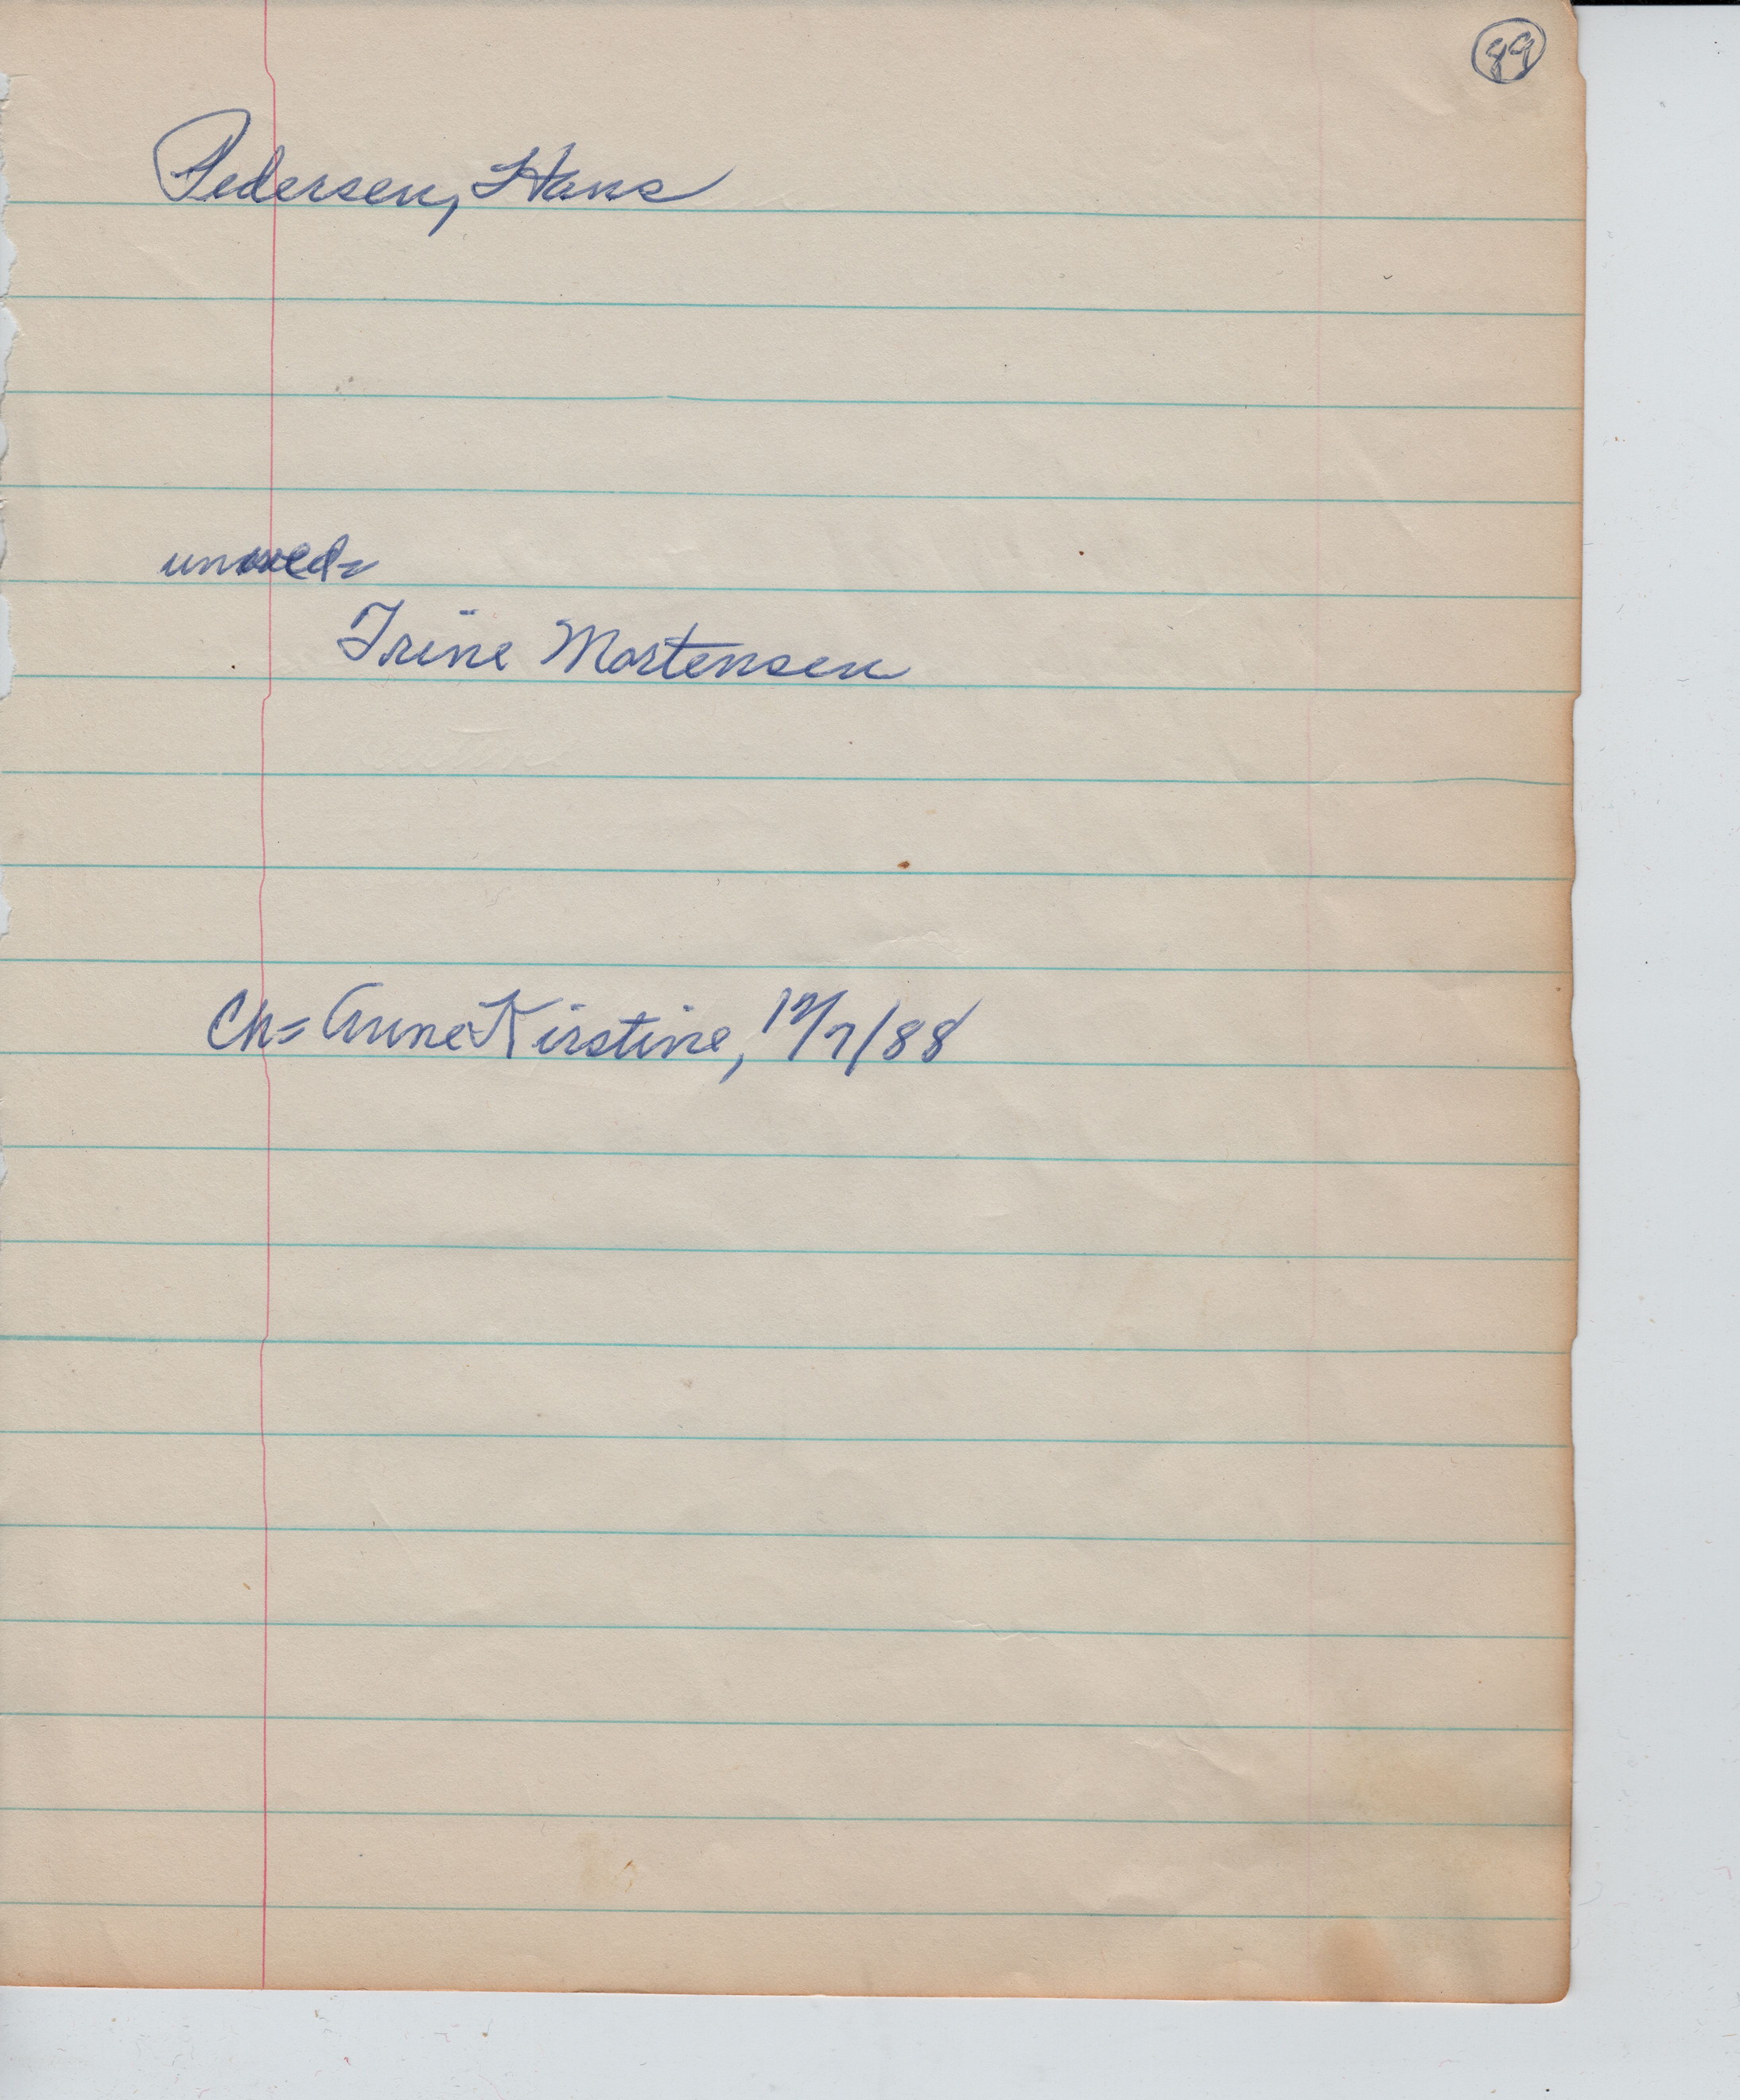 89
Pedersen, Hans
unwed=
Trine Mortensen
Ch= Anne Kirstine, 12/7/88